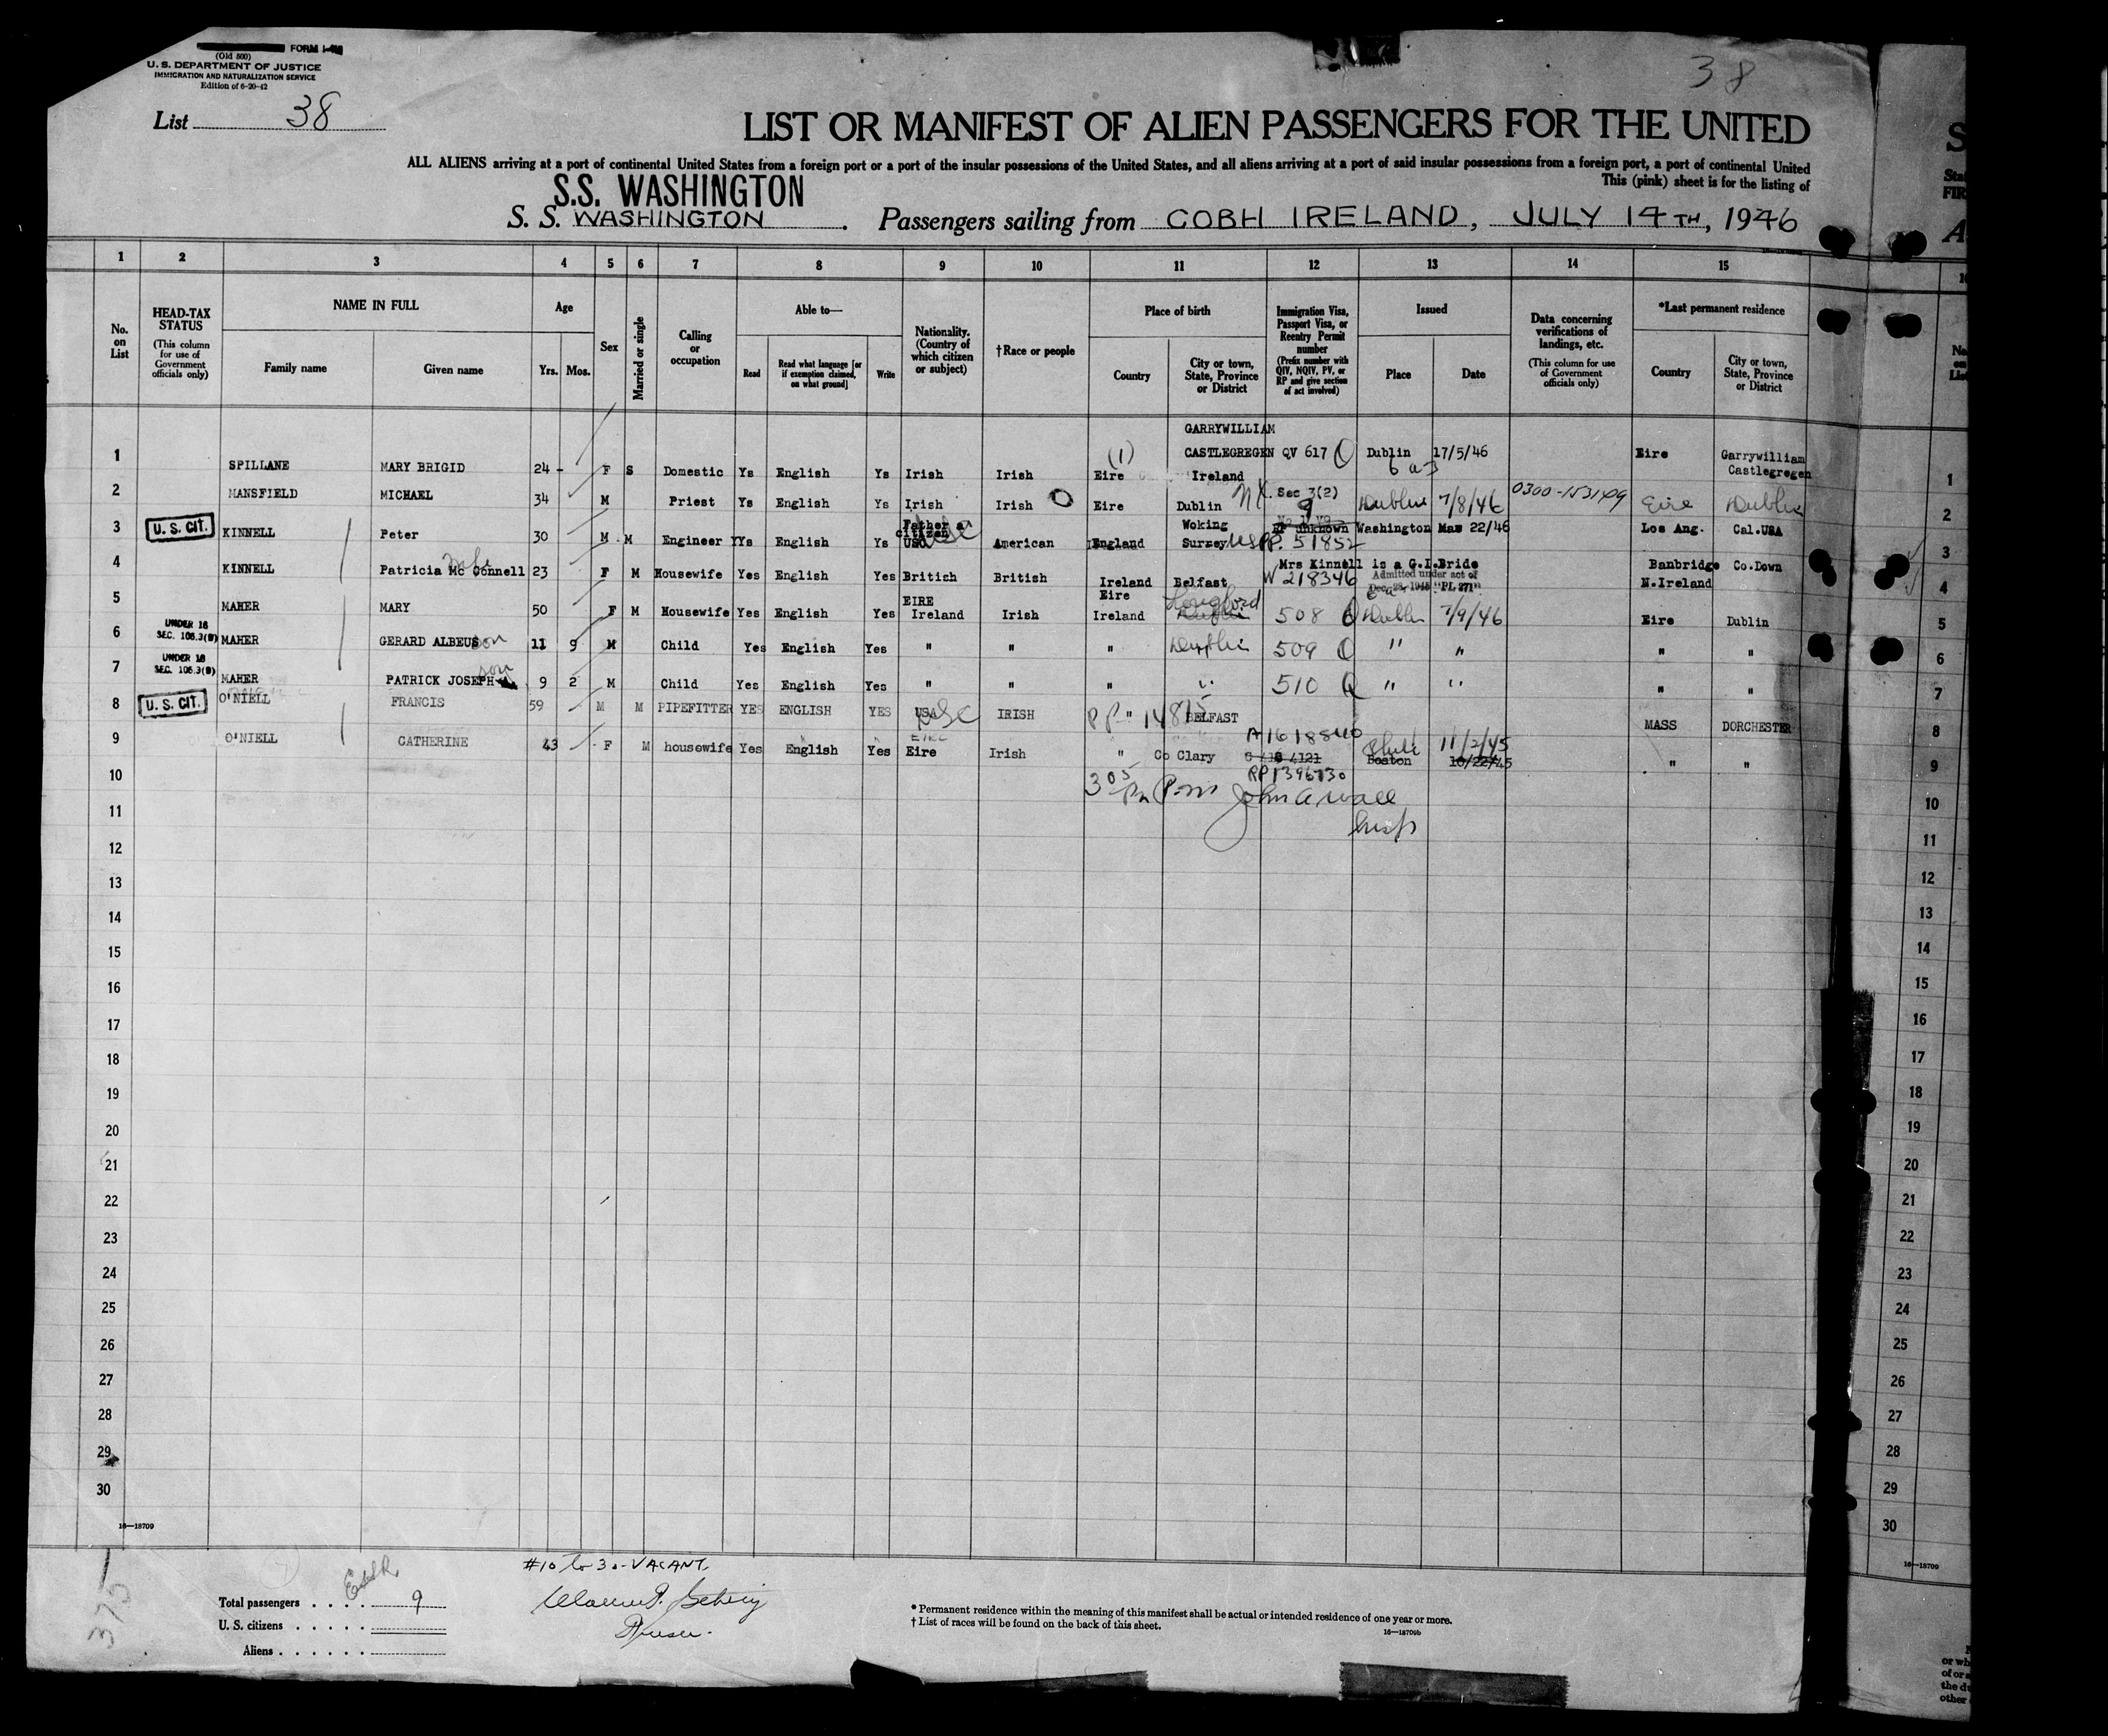 FORM I-
(Old 500)
U. S. DEPARTMENT OF JUSTICE
IMMIGRATION AND NATURALIZATION SERVICE
Edition of 6-20-42
38
List 38
LIST OR MANIFEST OF ALIEN PASSENGERS FOR THE UNITED
ALL ALIENS arriving at a port of continental United States from a foreign port or a port of the insular possessions of the United States, and all aliens arriving at a port of said insular possessions from a foreign port, a port of continental United
This (pink) sheet is for the listing of
S.S. WASHINGTON
S. S. WASHINGTON. Passengers sailing from COBH IRELAND, JULY 14TH, 1946
1 2 3 4 5 6 7 8 9 10 11 12 13 14 15
No. on List
HEAD-TAX STATUS (This column for use of Government officials only)
NAME IN FULL Family name Given name
Age Yrs. Mos.
Sex
Married or single
Calling or occupation
Able to— Read Read what language [or if exemption claimed, on what ground] Write
Nationality. (Country of which citizen or subject)
†Race or people
Place of birth Country City or town, State, Province or District
Immigration Visa, Passport Visa, or Reentry Permit number (Prefix number with QIV, NQIV, PV, or RP and give section of act involved)
Issued Place Date
Data concerning verifications of landings, etc. (This column for use of Government officials only)
*Last permanent residence Country City or town, State, Province or District
1 SPILLANE MARY BRIGID 24 - F S Domestic Ys English Ys Irish Irish (1) Eire GARRYWILLIAM CASTLEGREGEN Ireland QV 617 Dublin 17/5/46 Eire Garrywilliam Castlegregen 1
2 MANSFIELD MICHAEL 34 M Priest Ys English Ys Irish Irish Eire Dublin Sec 3(2) Dublin 7/8/46 0300-153109 Eire Dublin 2
3 U. S. CIT. KINNELL Peter 30 M M Engineer YYs English Ys Father a citizen USC American England Woking Surrey RP unknown USPP. 51852 Washington Mar 22/46 Los Ang. Cal.USA 3
4 KINNELL Patricia Mc Connell 23 F M Housewife Yes English Yes British British Ireland Belfast W 218346 Mrs Kinnell is a G.I.Bride Admitted under act of Dec. 28, 1945 "PL 271" Banbridge Co.Down N.Ireland 4
5 MAHER MARY 50 F M Housewife Yes English Yes EIRE Ireland Irish Eire Ireland Longford 508 Dublin 7/9/46 Eire Dublin 5
6 UNDER 16 SEC. 105.3(B) MAHER GERARD ALBEUS son 11 9 M Child Yes English Yes " " " Dublin 509 " " " " 6
7 UNDER 16 SEC. 105.3(B) MAHER PATRICK JOSEPH son 9 2 M Child Yes English Yes " " " " 510 " " " " 7
8 U. S. CIT. O'NIELL FRANCIS 59 M M PIPEFITTER YES ENGLISH YES USA USC IRISH " PP 14815 BELFAST MASS DORCHESTER 8
9 O'NIELL CATHERINE 43 F M housewife Yes English Yes EIRE Eire Irish " Co Clary A1618540 RP1396730 Boston 10/22/45 11/2/45 " " 9
10 10
305 John A Wall
11 Insp 11
12 12
13 13
14 14
15 15
16 16
17 17
18 18
19 19
20 20
21 21
22 22
23 23
24 24
25 25
26 26
27 27
28 28
29 29
30 30
16—18709
16—18709
#10 to 30-VACANT.
Total passengers . . . . 9
U. S. citizens . . . . .
Aliens . . . . . .
* Permanent residence within the meaning of this manifest shall be actual or intended residence of one year or more.
† List of races will be found on the back of this sheet.
16—18709b
375